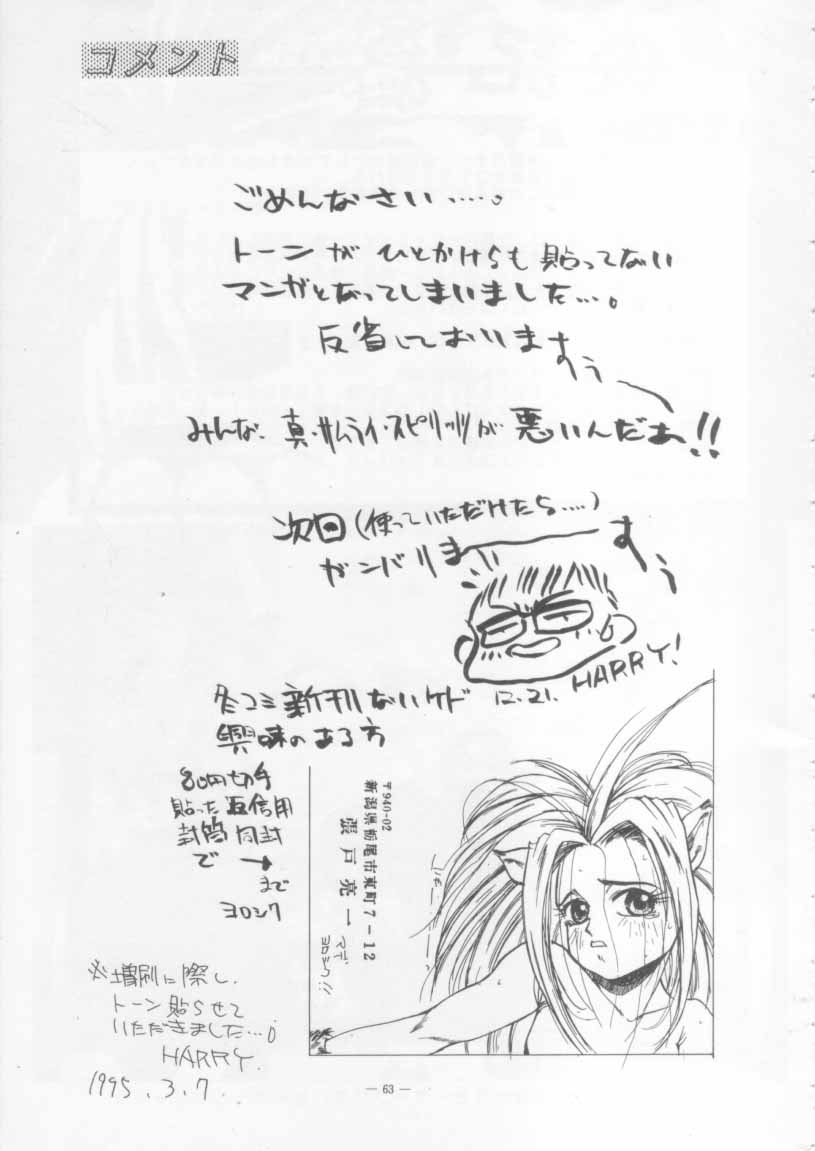 コメント
ごめんなさい……。
トーンがひとかけらも貼ってない
マンガとなってしまいました…。
反省しております
すぅ
みんな、真・サムライスピリッツが悪いんだぁ!!
次回(使っていただけたら….)
ガンバリますぅ
HARRY!
12.21.
冬コミ新刊ないケド
興味のある方
80円切手
貼った返信用
封筒同封
で→
まで
ヨロシク
〒940-02
新潟県栃尾市東町7-12
張戸亮一
マデ
ヨロシク!!
※増刷に際し、
トーン貼らせて
いただきました…。
HARRY.
1995.3.7.
— 63 —